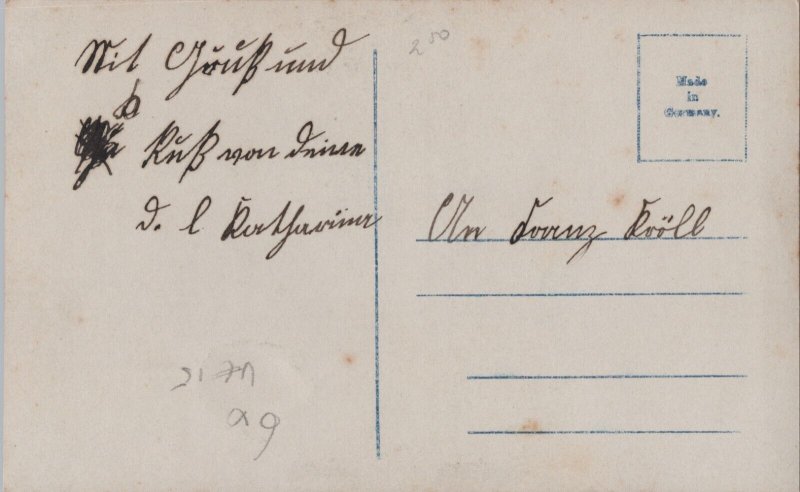 Mit Gruß und
Kuß von deine
d. l Katharina
250
Made
in
Germany.
An Franz Kröll